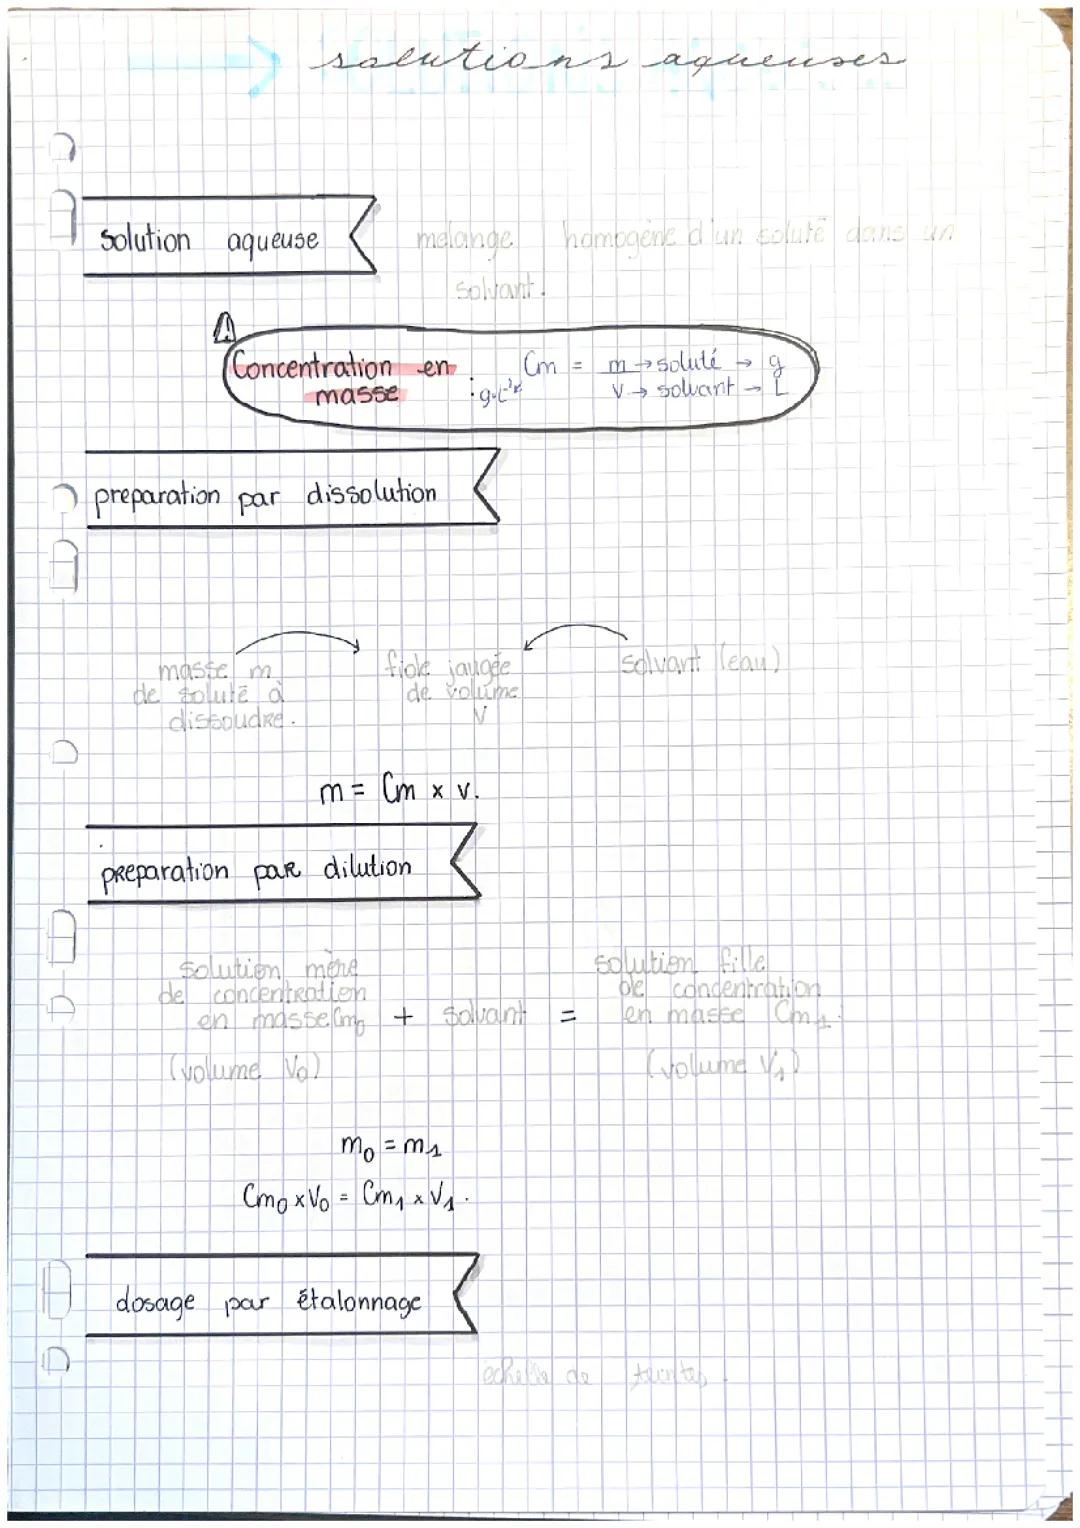 solutions aqueuses
solution aqueuse
melange homogène d'un soluté dans un
solvant.
Concentration en
masse
: g.L⁻¹
Cm = m → soluté → g
V → solvant → L
preparation par dissolution
masse m
de soluté à
dissoudre.
fiole jaugée
de volume
V
solvant (eau)
m = Cm x v.
preparation par dilution
solution mère
de concentration
en masse Cm₀
(volume V₀)
+ solvant =
solution fille
de concentration
en masse Cm₁.
(volume V₁)
m₀ = m₁
Cm₀ x V₀ = Cm₁ x V₁.
dosage par étalonnage
echelle de teintes.